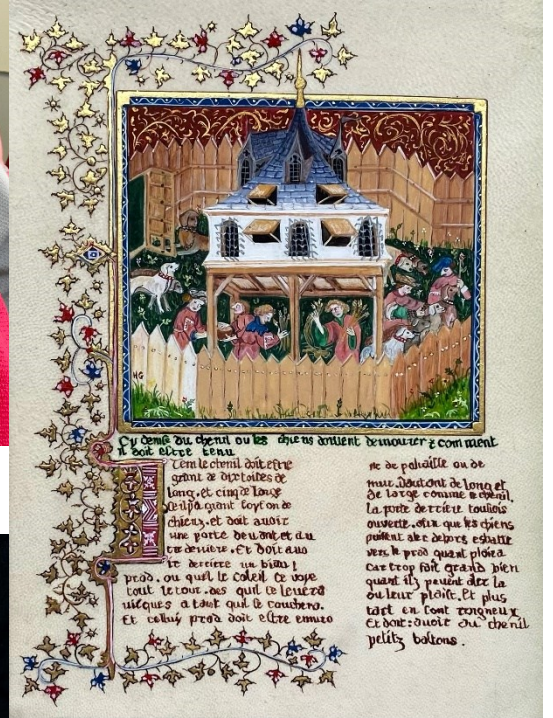 Cy devise du chenil ou les chiens doivent demourer & comment
il doit estre tenu
Item le chenil doit estre
grant de dix toises de
long. et cinq de large
se il y a grant foyson de
chienz, et doit avoir
une porte devant et au
tre derriere. Et doit avo
ir derriere un biau
prael. ou quel le soleil ce voye
tout le iour. des quil ce levera
iusques a tant quil se couchera.
Et celluy prael doit estre enviro
ne de paliaille ou de
mur. dautant de long et
de large comme le chenil.
la porte derriere tousiours
ouverte. afin que les chiens
puissent aler dehors esbatre
vers le prael quant
car trop fait grand bien
quant ils peuent aler la
ou leur plaist. Et plus
tart en sont rongneux
Et doit avoir au chenil
petitz bastons.
HG